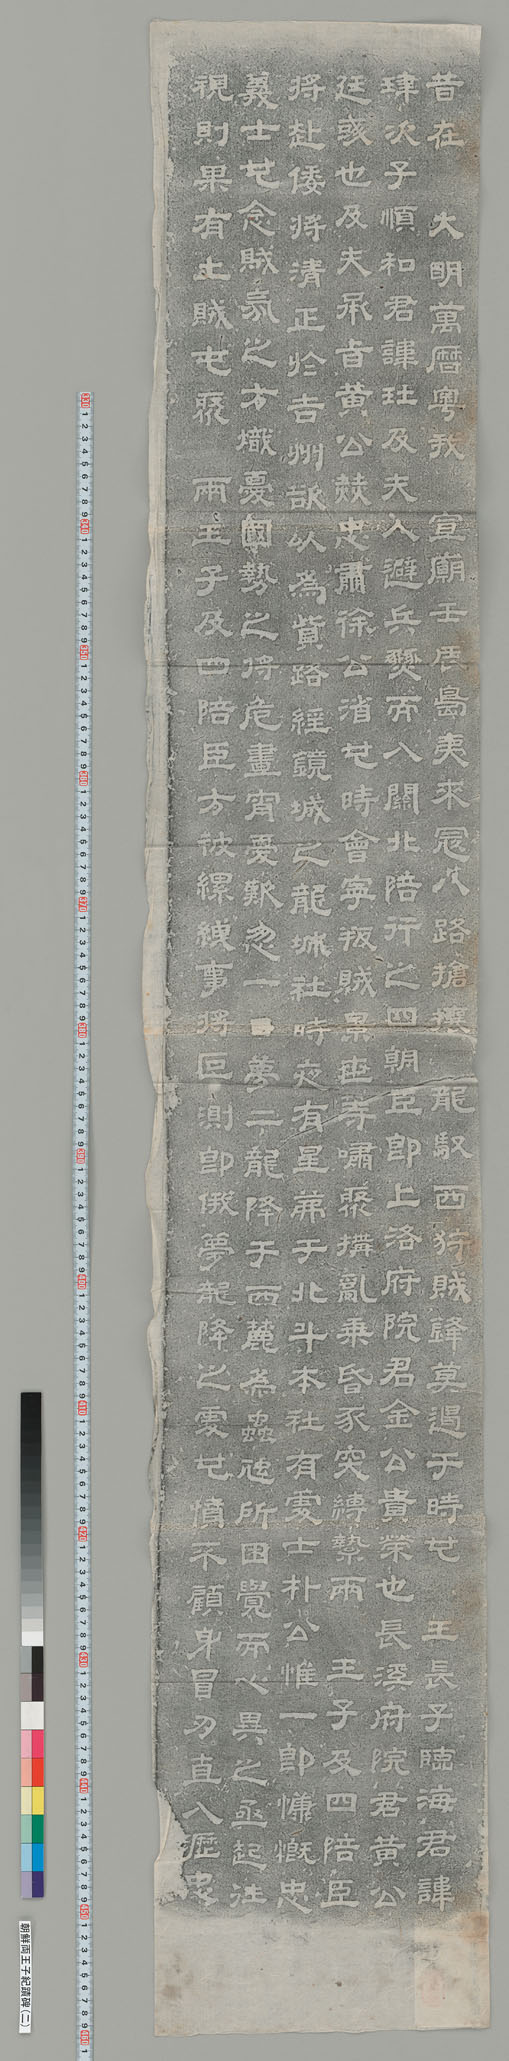 昔在 大明萬曆粤我 宣廟壬辰島夷來寇八路搶攘 龍馭西狩賊鋒莫遏于時也 王長子臨海君諱
珒次子順和君諱𤣰及夫人避兵燹而入關北陪行之四朝臣卽上洛府院君金公貴榮也長溪府院君黃公
廷彧也及夫承旨黃公赫忠肅徐公渻也時會寧叛賊景世等嘯聚搆亂乘昏豕突縛縶兩 王子及四陪臣
將赴倭將清正於吉州欲以為贄路經鏡城之龍城社時夜有星茀于北斗本社有處士朴公惟一卽慷慨忠
義士也念賊氛之方熾憂國勢之將危晝宵憂歎忽一 夢二龍降于西麓為蟲虺所困覺而心異之亟起往
視則果有土賊屯聚 兩王子及四陪臣方被縲絏事將叵測卽俄夢龍降之處也憤不顧身冒刃直入瀝忠
朝鮮両王子紀蹟碑(二)